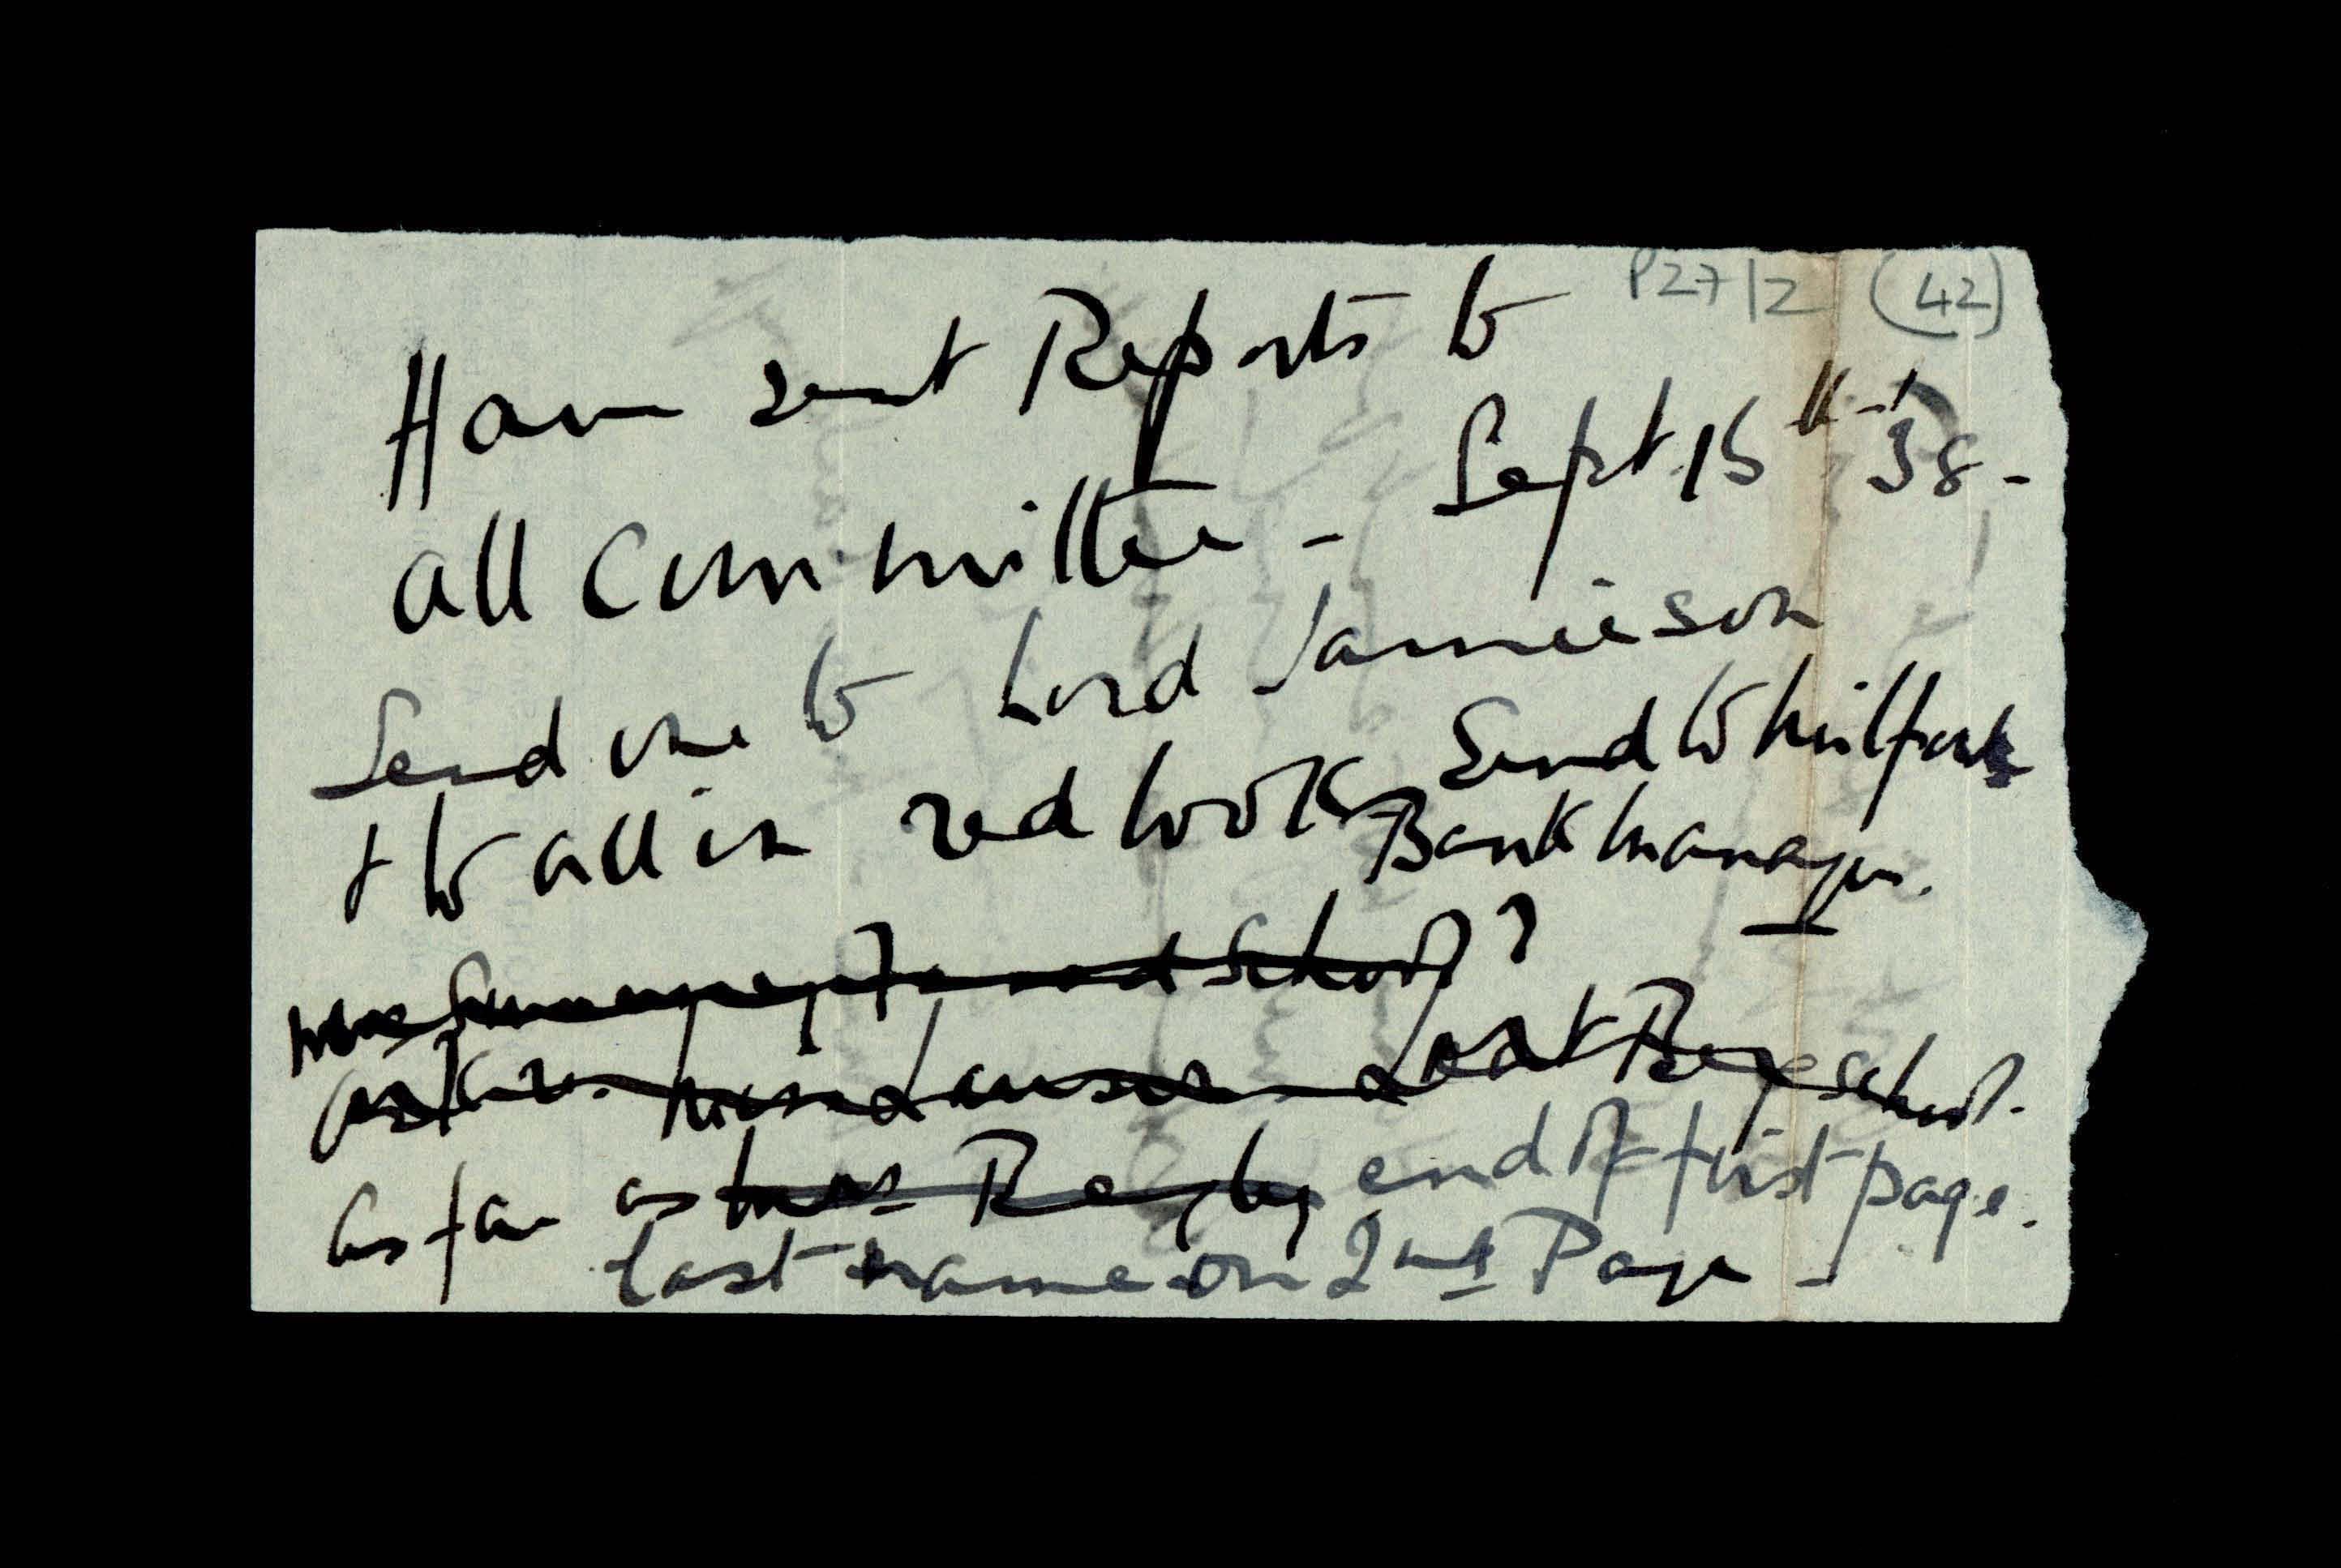 P27/2 (42)
Have sent Reports to
all Committee - Sept. 15th - '38 -
Send one to Lord Jamieson
& to all in red book Send to Milford
Bank Manager.
School ?
at School.
As far as Miss Bagby end of first page.
last name on 2nd Page -